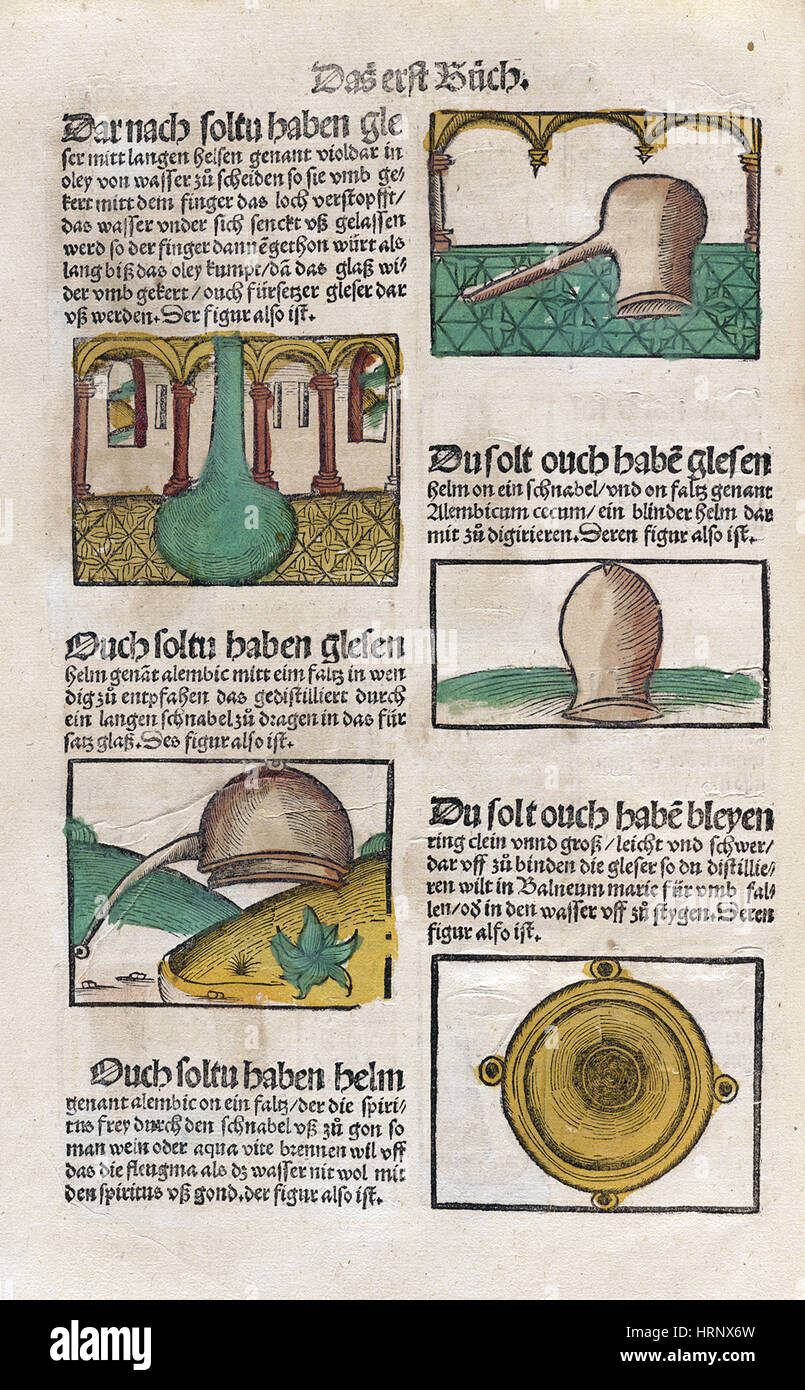 Das erst Bůch.
Dar nach soltu haben gle
ser mitt langen helsen genant violdar in
oley von wasser zů scheiden so sie vmb ge-
kert mitt dem finger das loch verstopfft/
das wasser vnder sich senckt vß gelassen
werd so der finger dannē gethon würt als
lang biß das oley kumpt/dā das glaß wi-
der vmb gekert/ouch fürsetzer gleser dar
vß werden. Der figur also ist.
Ouch soltu haben glesen
helm genāt alembic mitt eim faltz in wen
dig zů entpfahen das gedistilliert durch
ein langen schnabel zů dragen in das für
satz glaß. Des figur also ist.
Ouch soltu haben helm
genant alembic on ein faltz/der die spiri-
tus frey durch den schnabel vß zů gon so
man wein oder aqua vite brennen wil vff
das die fleugma als dz wasser nit wol mit
den spiritus vß gond. der figur also ist.
Du solt ouch habē glesen
helm on ein schnabel/vnd on faltz genant
Alembicum cecum/ein blinder helm dar
mit zů digirieren. Deren figur also ist.
Du solt ouch habē bleyen
ring clein vnnd groß/leicht vnd schwer/
dar vff zů binden die gleser so du distillie-
ren wilt in Balneum marie für vmb fal-
len/od in den wasser vff zů stygen. Deren
figur also ist.
alamy stock photo
HRNX6W
www.alamy.com